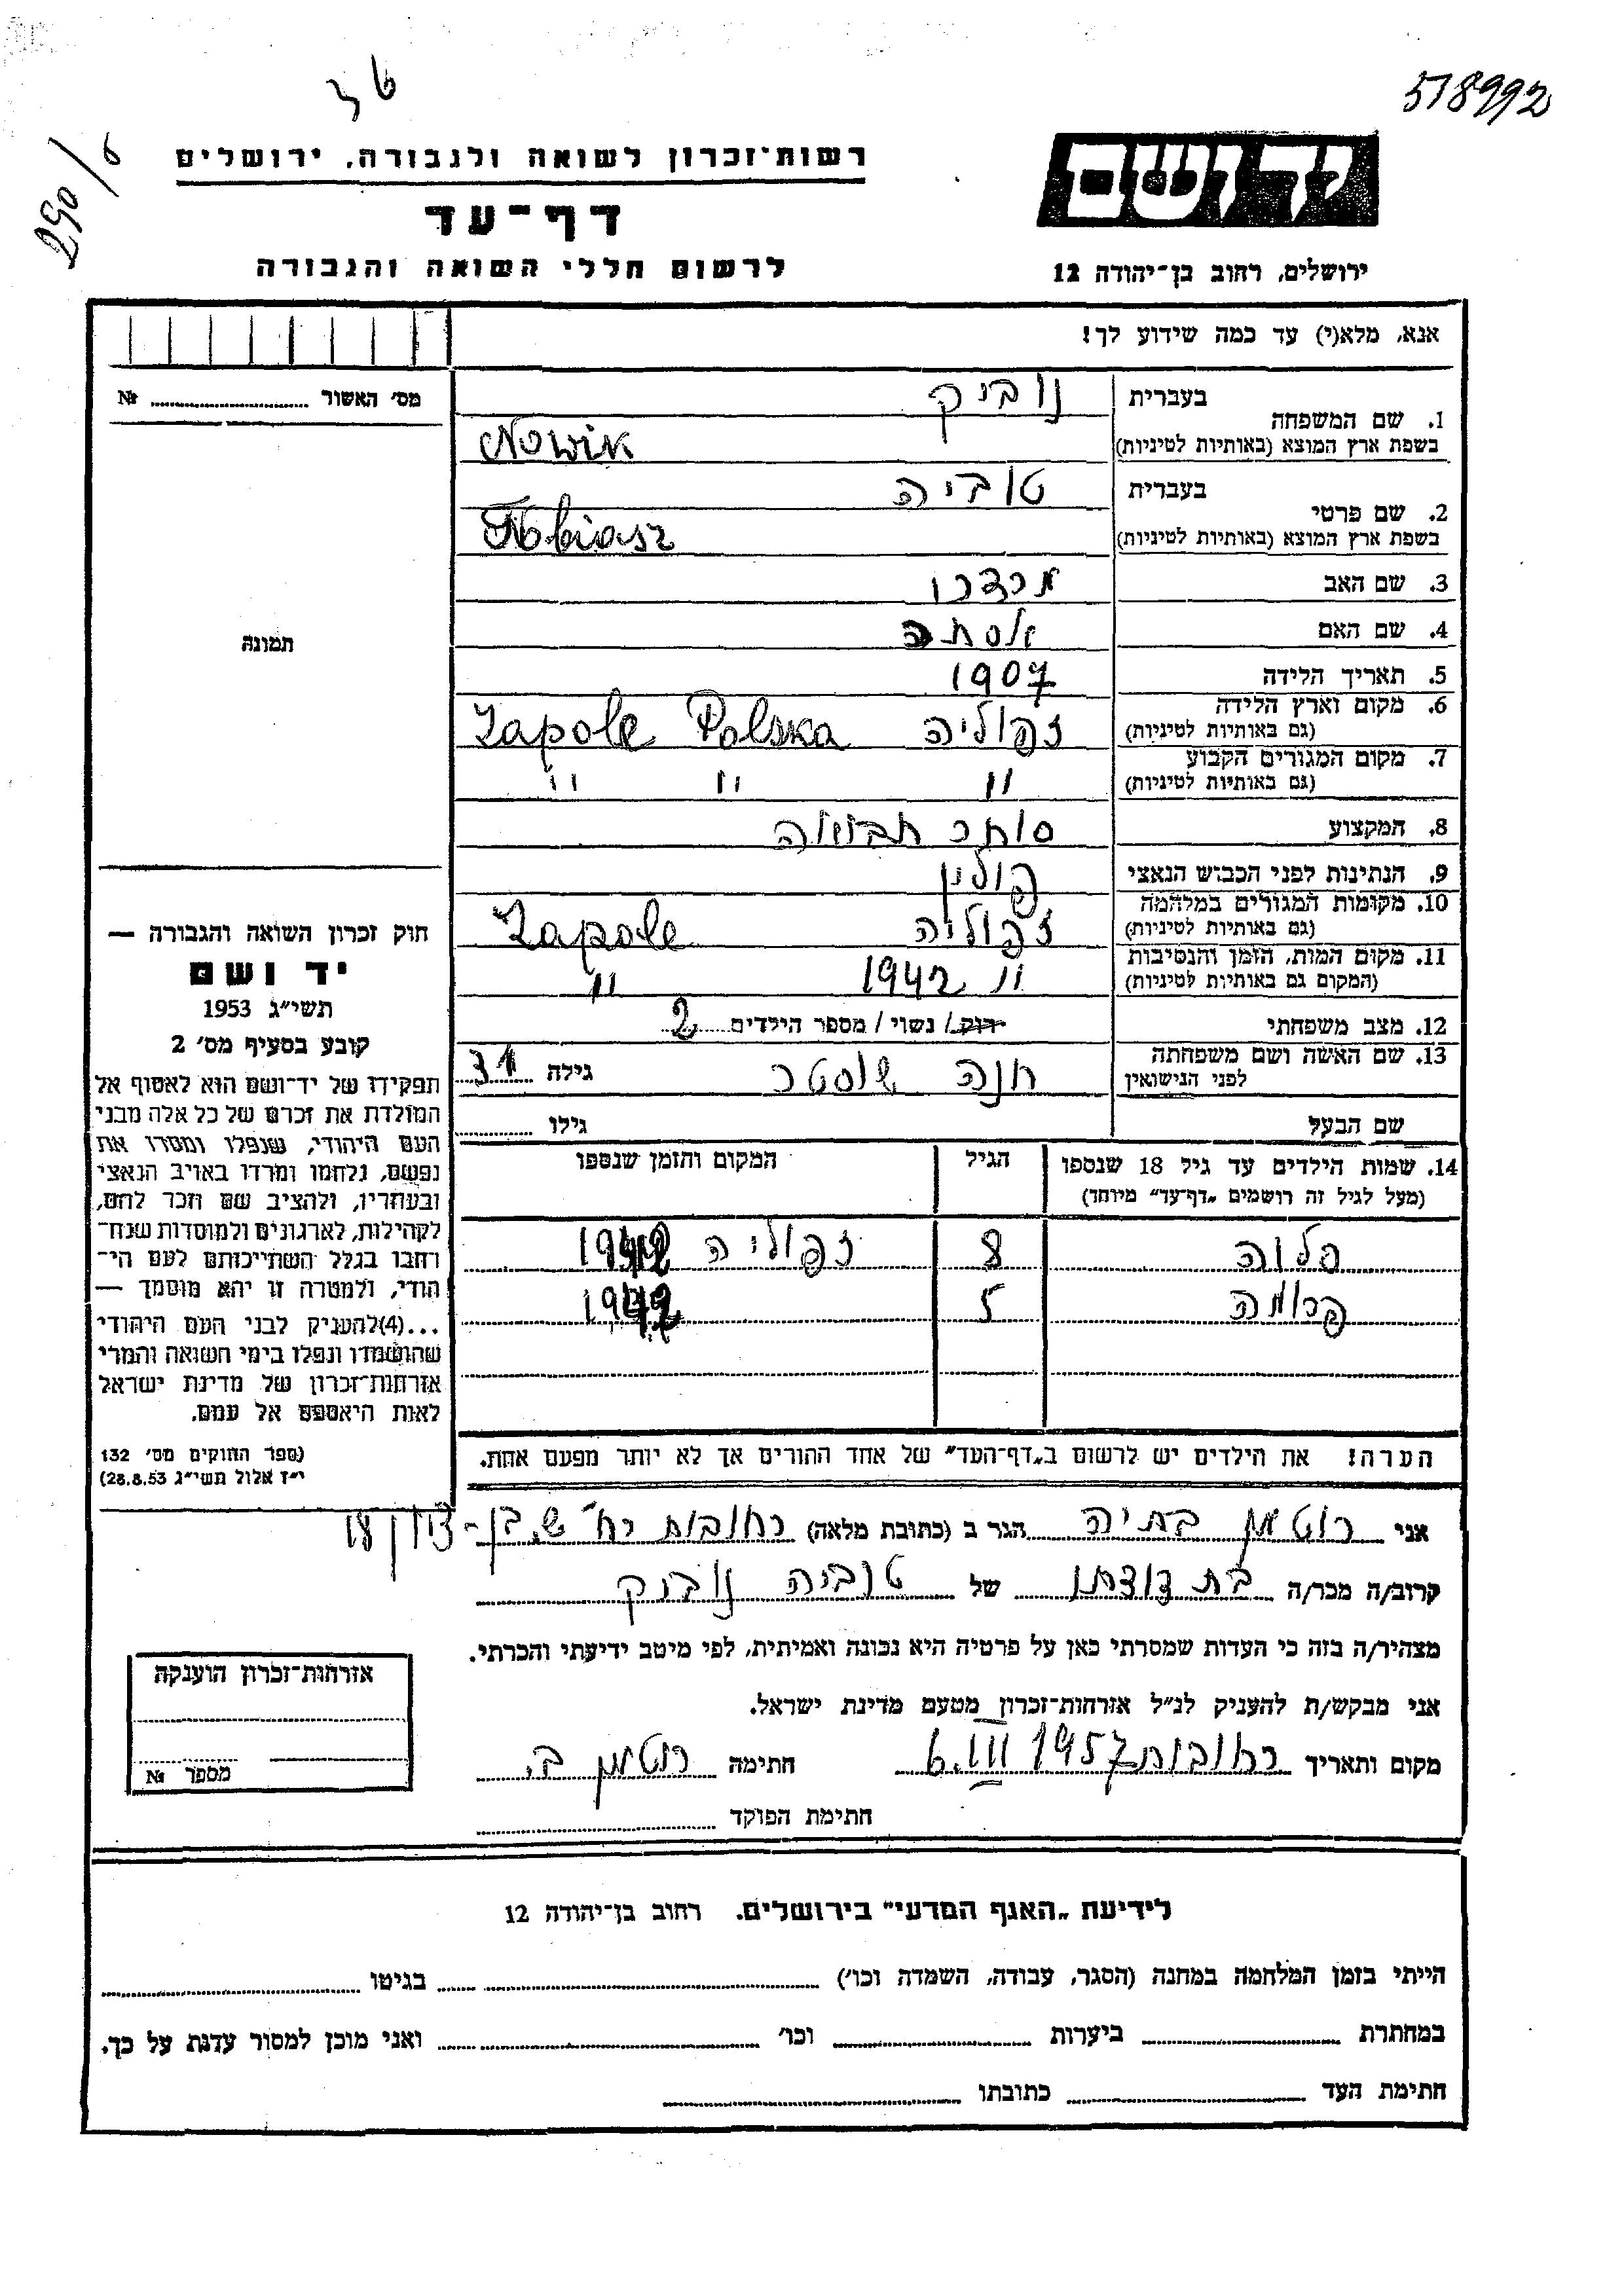 518992
290/6
יד ושם
ירושלים, רחוב בן־יהודה 12
רשות־זכרון לשואה ולגבורה, ירושלים
דף־עד
לרשום חללי השואה והגבורה
אנא, מלא(י) עד כמה שידוע לך!
מס׳ האשור № 
תמונה
1. שם המשפחה
בעברית נוביק
בשפת ארץ המוצא (באותיות לטיניות) Nowik
2. שם פרטי
בעברית טוביה
בשפת ארץ המוצא (באותיות לטיניות) Tobiasz
3. שם האב מרדכי
4. שם האם
5. תאריך הלידה 1907
6. מקום וארץ הלידה
(גם באותיות לטיניות) זפוליה Zapole Polska
7. מקום המגורים הקבוע
(גם באותיות לטיניות) " " "
8. המקצוע סוחר תבואה
9. הנתינות לפני הכבוש הנאצי פולין
10. מקומות המגורים במלחמה
(גם באותיות לטיניות) זפוליה Zapole
11. מקום המות, הזמן והנסיבות
(המקום גם באותיות לטיניות) " 1942 "
12. מצב משפחתי רוק / נשוי / מספר הילדים 2
13. שם האשה ושם משפחתה
לפני הנישואין חנה שוסטר גילה 31
שם הבעל גילו
14. שמות הילדים עד גיל 18 שנספו הגיל המקום והזמן שנספו
(מעל לגיל זה רושמים „דף־עד״ מיוחד)
8 זפוליה 1942
פרומה 5 1942
הערה! את הילדים יש לרשום ב„דף־העד״ של אחד ההורים אך לא יותר מפעם אחת.
חוק זכרון השואה והגבורה —
יד ושם
תשי״ג 1953
קובע בסעיף מס׳ 2
תפקידו של יד־ושם הוא לאסוף אל
המולדת את זכרם של כל אלה מבני
העם היהודי, שנפלו ומסרו את
נפשם, נלחמו ומרדו באויב הנאצי
ובעוזריו, ולהציב שם וזכר להם,
לקהילות, לארגונים ולמוסדות שנח־
רבו בגלל השתייכותם לעם הי־
הודי, ולמטרה זו יהא מוסמך —
...(4)להעניק לבני העם היהודי
שהושמדו ונפלו בימי השואה והמרי
אזרחות־זכרון של מדינת ישראל
לאות היאספם אל עמם.
(ספר החוקים מס׳ 132
י״ז אלול תשי״ג 28.8.53)
אני רוטמן בתיה הגר ב (כתובת מלאה) רחובות רח׳ ש. בן-ציון 18
קרוב/ה מכר/ה בת דודתו של טוביה נוביק
מצהיר/ה בזה כי העדות שמסרתי כאן על פרטיה היא נכונה ואמיתית, לפי מיטב ידיעתי והכרתי.
אני מבקש/ת להעניק לנ״ל אזרחות־זכרון מטעם מדינת ישראל.
מקום ותאריך רחובות 6.III 1957 חתימה רוטמן ב.
חתימת הפוקד
אזרחות־זכרון הוענקה
מספר №
לידיעת „האגף המדעי״ בירושלים. רחוב בן־יהודה 12
הייתי בזמן המלחמה במחנה (הסגר, עבודה, השמדה וכו׳) בגיטו
במחתרת ביערות וכו׳ ואני מוכן למסור עדות על כך.
חתימת העד כתובתו